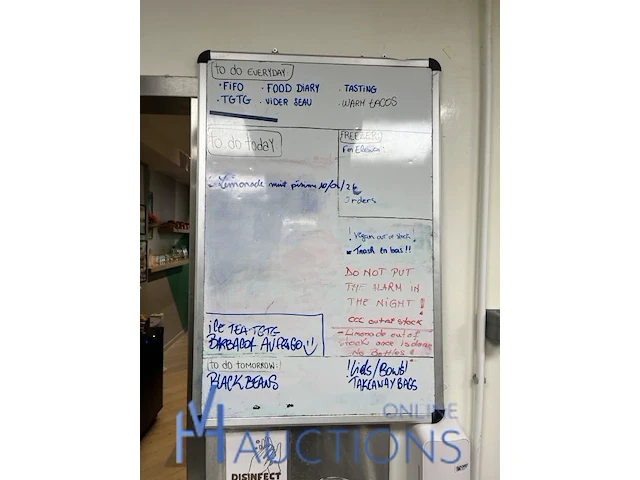 to do EVERYDAY
· FIFO · FOOD DIARY · TASTING
· TGTG · VIDER SEAU · WARM TACOS
to do today
FREEZER
For
Limonade
Orders
! Vegan out of stock!
Trash en bas!!
DO NOT PUT
THE ALARM IN
THE NIGHT!
CCC out of stock
- Limonade out of
stock once is done
No Bottles!
ICE TEA TGTG
BARBACOA
to do TOMORROW:
BLACK BEANS
! Lids/Bowls!
TAKEAWAY BAGS
ONLINE
AUCTIONS
DISINFECT